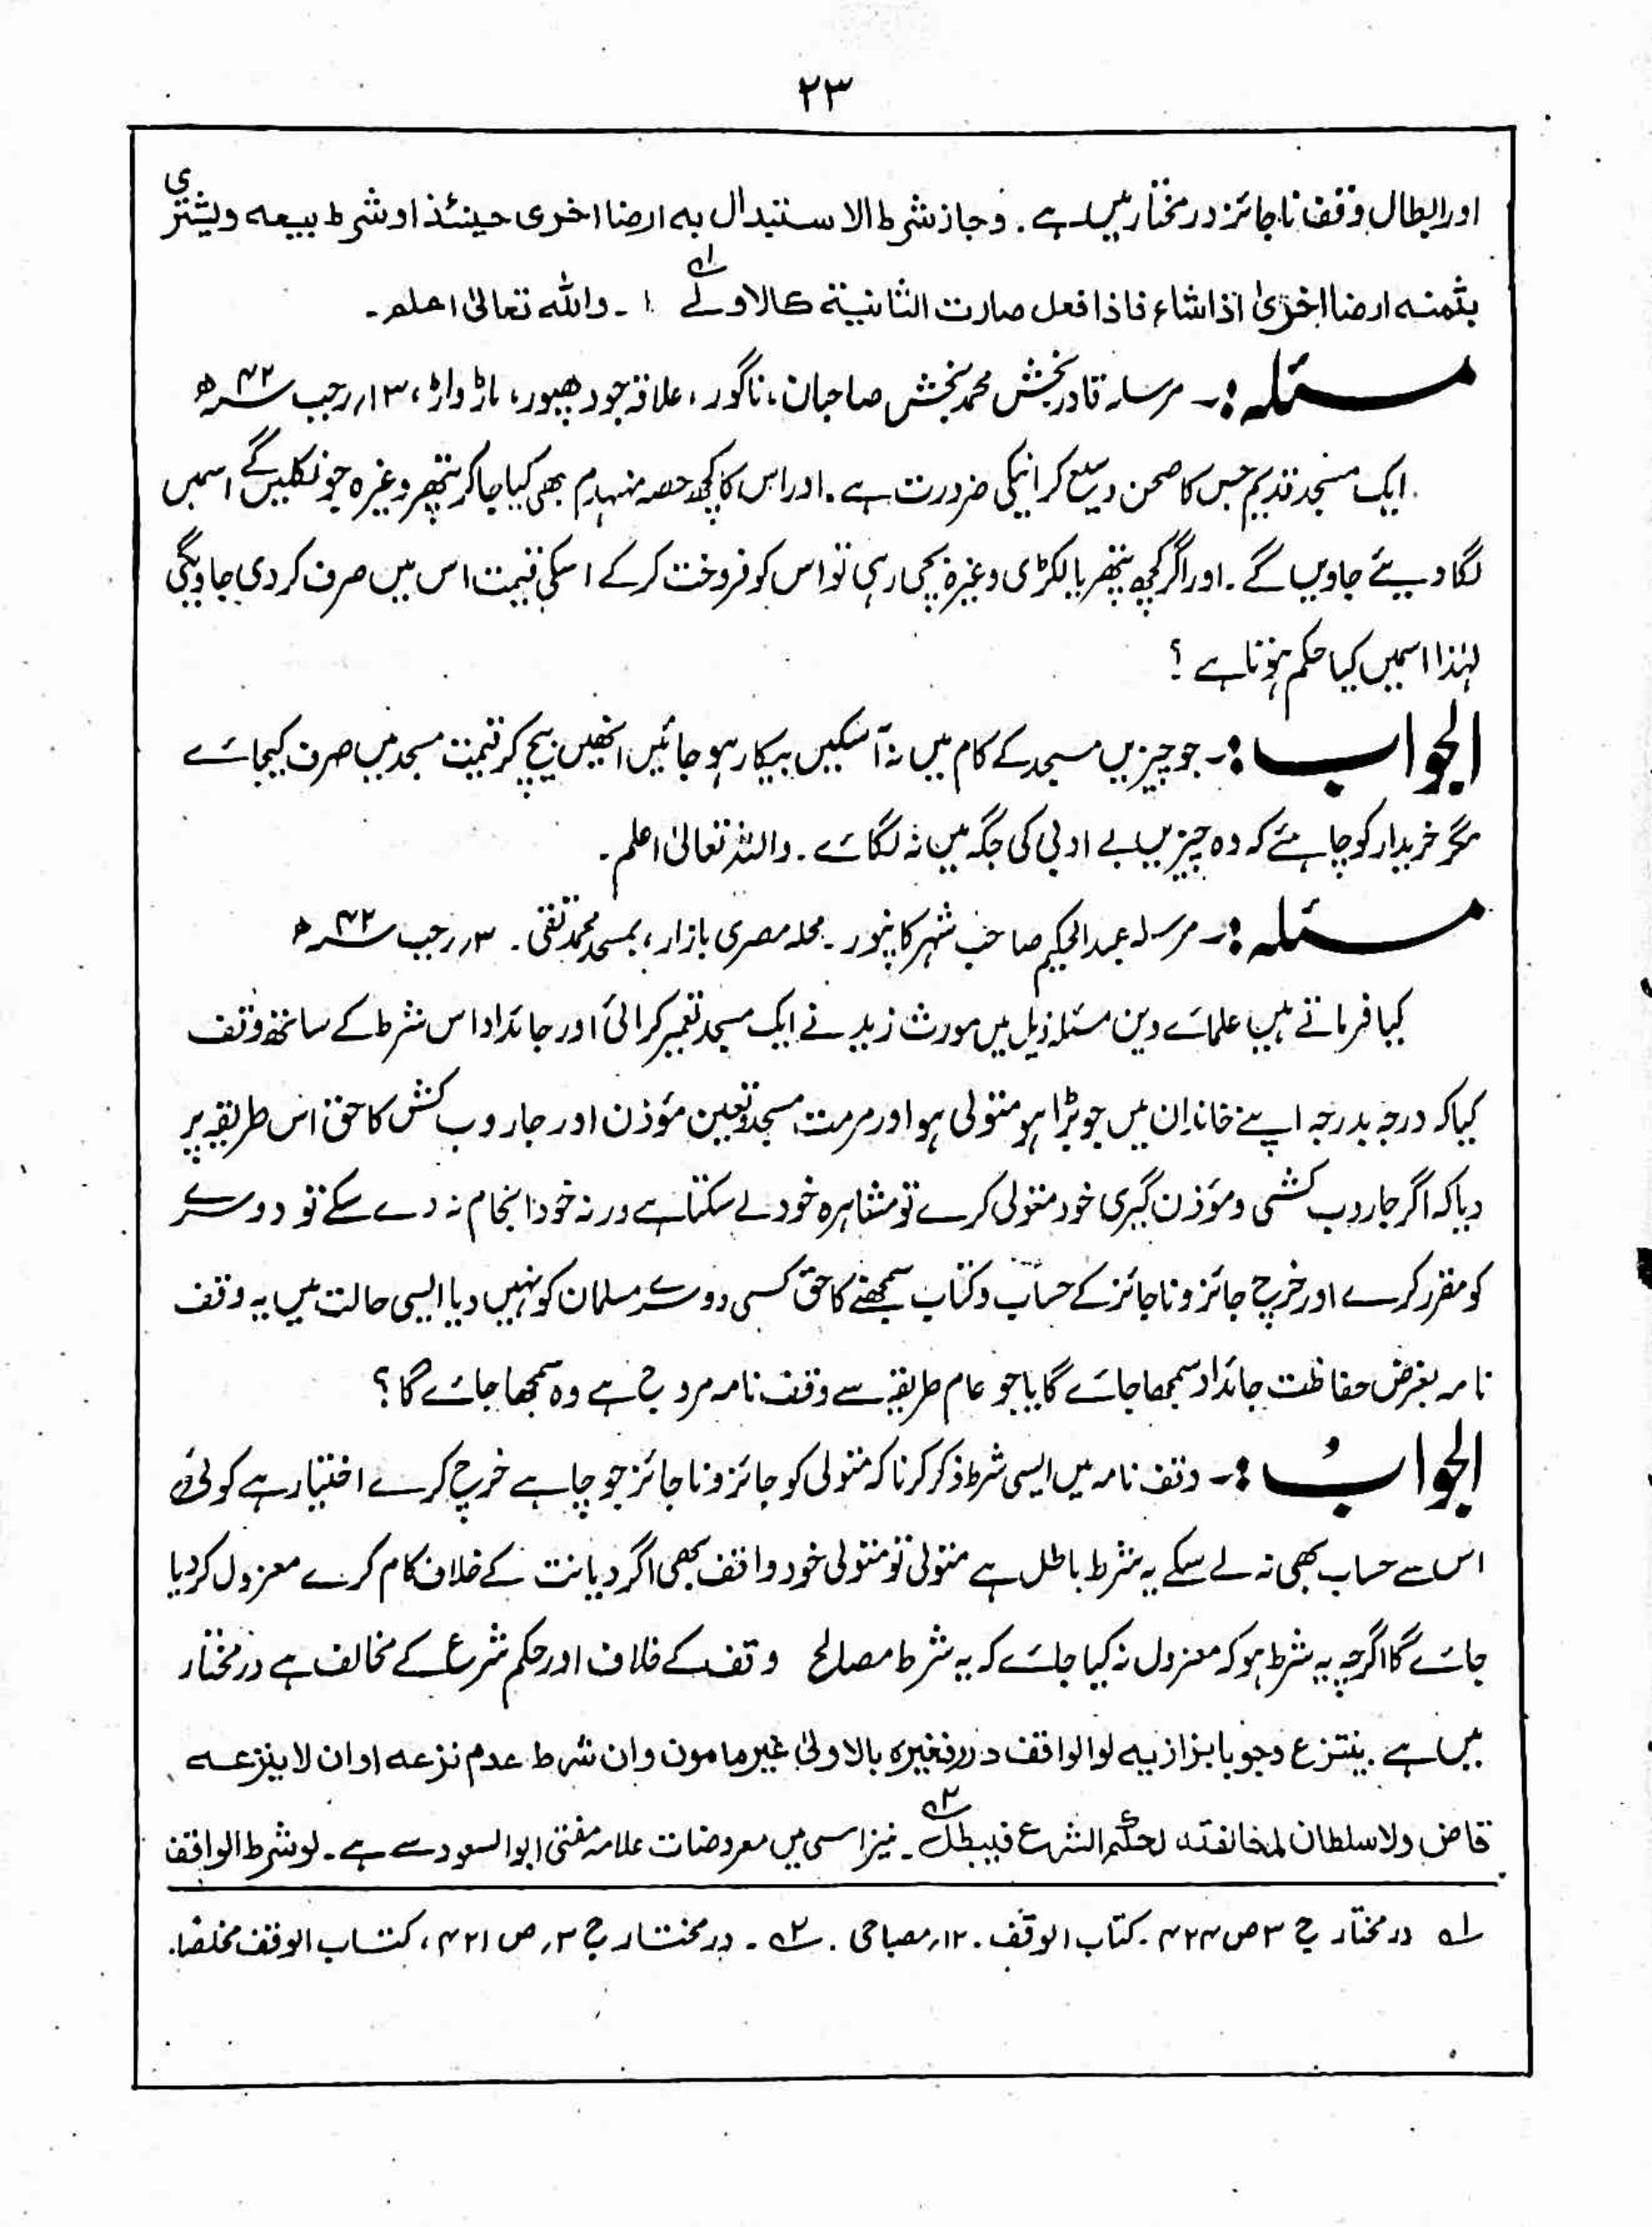 ۲۳
اور ابطال وقف ناجائز درمختار میں ہے . وجاز شرط الاستبدال به ارضا اخرى حينئذ او شرط بيعه ويشترى
بثمنه ارضا اخرىٰ اذا شاء فاذا فعل صارت الثانية كالاولے ۱ے ۔ واللہ تعالیٰ اعلم۔
مسئلہ :۔ مرسلہ قادر بخش محمد بخش صاحبان، ناگور، علاقہ جودھپور، ماڑواڑ، ۱۳؍رجب ۴۲ھ
ایک مسجد قدیم جس کا صحن وسیع کرانیکی ضرورت ہے۔ اور اس کا کچھ حصہ منہدم بھی کیا جاکر پتھر وغیرہ جو نکلیں گے اسمیں
لگا دیئے جاویں گے ۔ اور اگر کچھ پتھر یا لکڑی وغیرہ بچی رہی تو اس کو فروخت کرکے اسکی قیمت اس میں صرف کر دی جاویگی
لہٰذا اسمیں کیا حکم ہوتا ہے ؟
الجواب :۔ جو چیزیں مسجد کے کام میں نہ آسکیں بیکار ہو جائیں انھیں بیچ کر قیمت مسجد میں صرف کیجائے
مگر خریدار کو چاہئے کہ وہ چیزیں بے ادبی کی جگہ میں نہ لگائے ۔ واللہ تعالیٰ اعلم ۔
مسئلہ :۔ مرسلہ عبدالحکیم صاحب شہر کانپور ۔ محلہ مصری بازار، بمسجد محمد تقی ۔ ۳؍رجب ۴۲ھ
کیا فرماتے ہیں علمائے دین مسئلہ ذیل میں مورث زید نے ایک مسجد تعمیر کرائی اور جائداد اس شرط کے ساتھ وقف
کیا کہ درجہ بدرجہ اپنے خاندان میں جو بڑا ہو متولی ہو اور مرمت مسجد و تعین مؤذن اور جاروب کش کا حق اس طریقہ پر
دیا کہ اگر جاروب کشی و مؤذن گیری خود متولی کرے تو مشاہرہ خود لے سکتا ہے ورنہ خود انجام نہ دے سکے تو دوسرے
کو مقرر کرے اور خرچ جائز و ناجائز کے حساب و کتاب سمجھنے کا حق کسی دوسرے مسلمان کو نہیں دیا ایسی حالت میں یہ وقف
نامہ بغرض حفاظت جائداد سمجھا جائے گا یا جو عام طریقہ سے وقف نامہ مروج ہے وہ سمجھا جائے گا ؟
الجوابُ :۔ وقف نامہ میں ایسی شرط ذکر کرنا کہ متولی کو جائز و ناجائز جو چاہے خرچ کرے اختیار ہے کوئی
اس سے حساب بھی نہ لے سکے یہ شرط باطل ہے متولی تو متولی خود واقف بھی اگر دیانت کے خلاف کام کرے معزول کردیا
جائے گا اگرچہ یہ شرط ہو کہ معزول نہ کیا جائے کہ یہ شرط مصالح وقف کے خلاف اور حکم شرع کے مخالف ہے درمختار
میں ہے . ينتزع وجوبا بزازيه لو الواقف درر فغيره بالاولىٰ غير مامون وان شرط عدم نزعه او ان لا ينزعه
قاض ولا سلطان لمخالفته لحكم الشرع فيبطل ۲ے ۔ نیز اسی میں معروضات علامہ مفتی ابوالسعود سے ہے ۔ لو شرط الواقف
۱ے درمختار ج ۳ ص ۴۲۴ ۔ کتاب الوقف ۔ ۱۲؍مصباحی . ۲ے ۔ درمختار ج ۳؍ ص ۴۲۱ ، کتاب الوقف مخلصا.